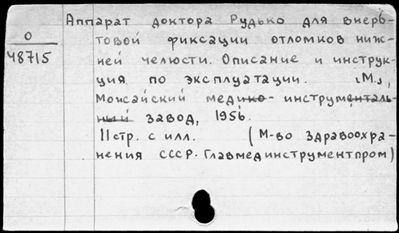 Аппарат доктора Рудько для внерв-
О
48715
товой фиксации отломков ниж-
ней челюсти. Описание и инструк-
ция по эксплуатации. [М.],
Мойсайский медико- инструменталь-
ный завод, 1956.
11 стр. с илл. (М-во здравоохра-
нения СССР. Главмединструментпром)